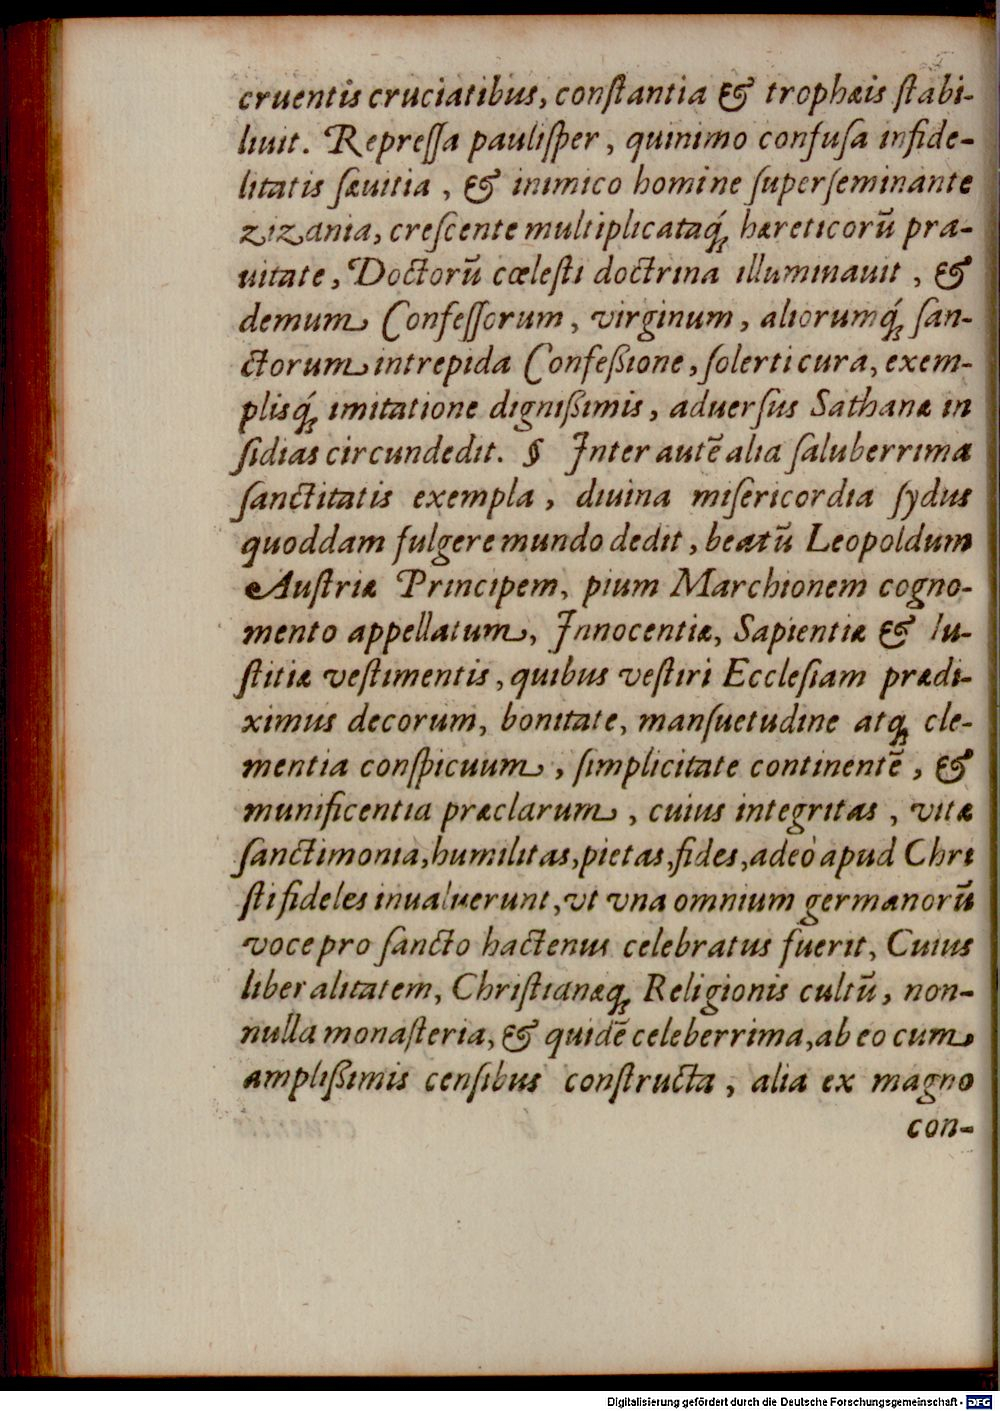 cruentis cruciatibus, conſtantia & trophæis ſtabi-
liuit. Repreſſa pauliſper, quinimo confuſa infide-
litatis ſæuitia, & inimico homine ſuperſeminante
zizania, creſcente multiplicataq́; hæreticorũ pra-
uitate, Doctorũ cœleſti doctrina illuminauit, &
demum Confeſſorum, virginum, aliorumq́; ſan-
ctorum intrepida Confeßione, ſolerti cura, exem-
plisq́; imitatione dignißimis, aduerſus Sathanæ in
ſidias circundedit. § Inter autẽ alia ſaluberrima
ſanctitatis exempla, diuina miſericordia ſydus
quoddam fulgere mundo dedit, beatũ Leopoldum
Auſtriæ Principem, pium Marchionem cogno-
mento appellatum, Innocentiæ, Sapientiæ & Iu-
ſtitiæ veſtimentis, quibus veſtiri Eccleſiam prædi-
ximus decorum, bonitate, manſuetudine atq; cle-
mentia conſpicuum, ſimplicitate continentẽ, &
munificentia præclarum, cuius integritas, vitæ
ſanctimonia, humilitas, pietas, fides, adeò apud Chri
ſti fideles inualuerunt, vt vna omnium germanorũ
voce pro ſancto hactenus celebratus fuerit, Cuius
liberalitatem, Chriſtianæq; Religionis cultũ, non-
nulla monaſteria, & quidẽ celeberrima, ab eo cum
amplißimis cenſibus conſtructa, alia ex magno
con-
Digitalisierung gefördert durch die Deutsche Forschungsgemeinschaft - DFG